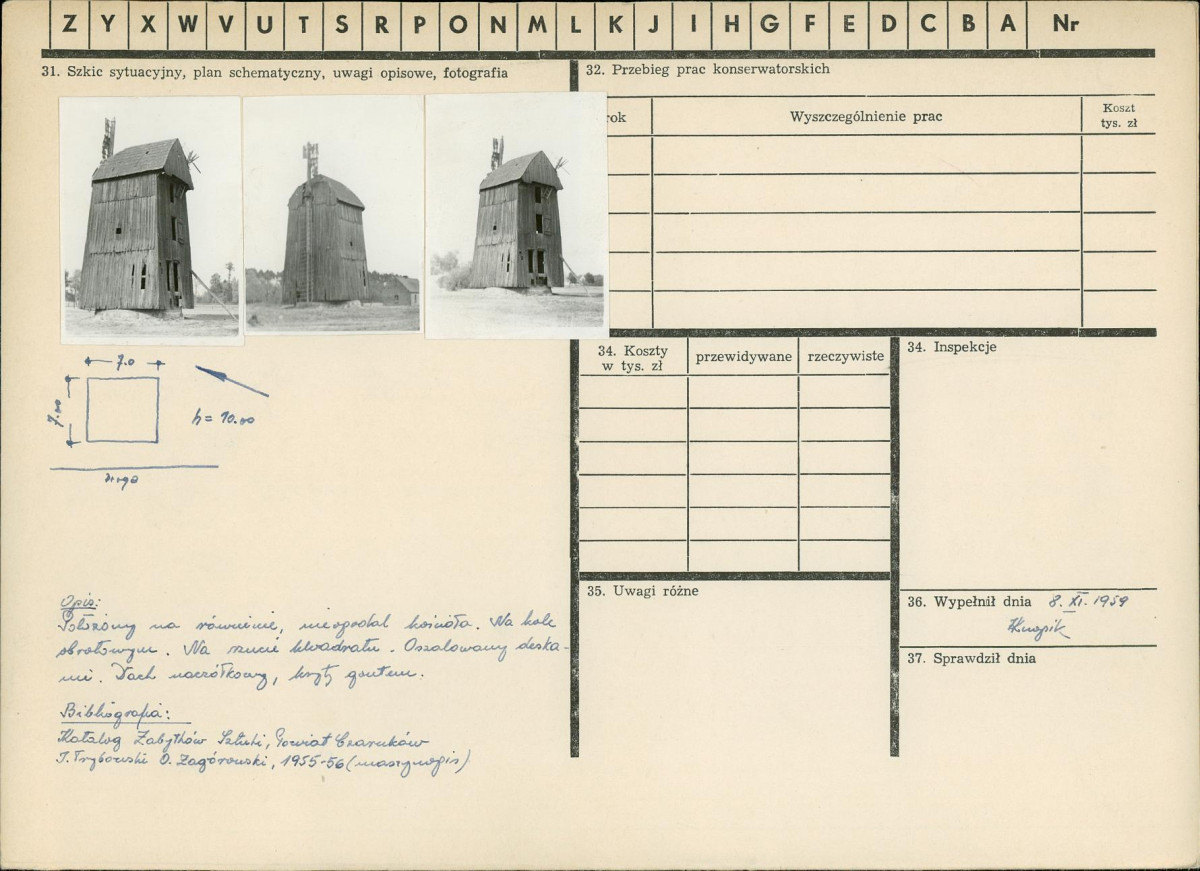 Z Y X W V U T S R P O N M L K J I H G F E D C B A Nr
31. Szkic sytuacyjny, plan schematyczny, uwagi opisowe, fotografia
7.0
7.00
h = 10.00
droga
Opis:
Położony na równinie, nieopodal kościoła. Na kole
obrotowym. Na rzucie kwadratu. Oszalowany deska-
mi. Dach naczółkowy, kryty gontem.
Bibliografia:
Katalog Zabytków Sztuki, Powiat Czarnków
T. Trybowski O. Zagórowski, 1955-56 (maszynopis)
32. Przebieg prac konserwatorskich
rok
Wyszczególnienie prac
Koszt
tys. zł
34. Koszty
w tys. zł
przewidywane
rzeczywiste
34. Inspekcje
35. Uwagi różne
36. Wypełnił dnia 8. XI. 1959
37. Sprawdził dnia